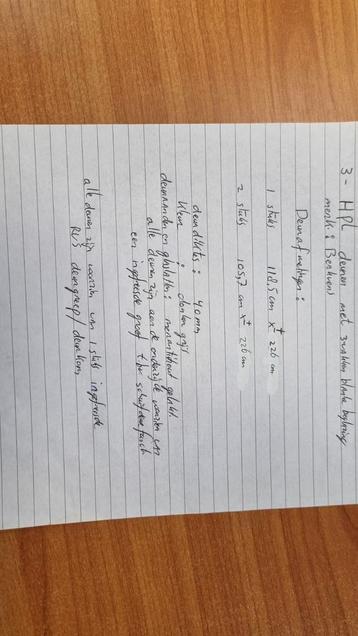 3- HPL deuren met zwarte blanke
merk: Berkvens
Deurafmetingen:
1 stuks 118,5 cm x ± 226 cm
2 stuks 105,7 cm x ± 226 cm
deurdikte: 40 mm
kleur: donker grijs
deurranden en
alle deuren zijn aan de onderzijde voorzien van
een ingefreesde groef t.b.v.
alle deuren zijn voorzien van 1 stuks ingefreesde
RVS deurgreep/deurkom